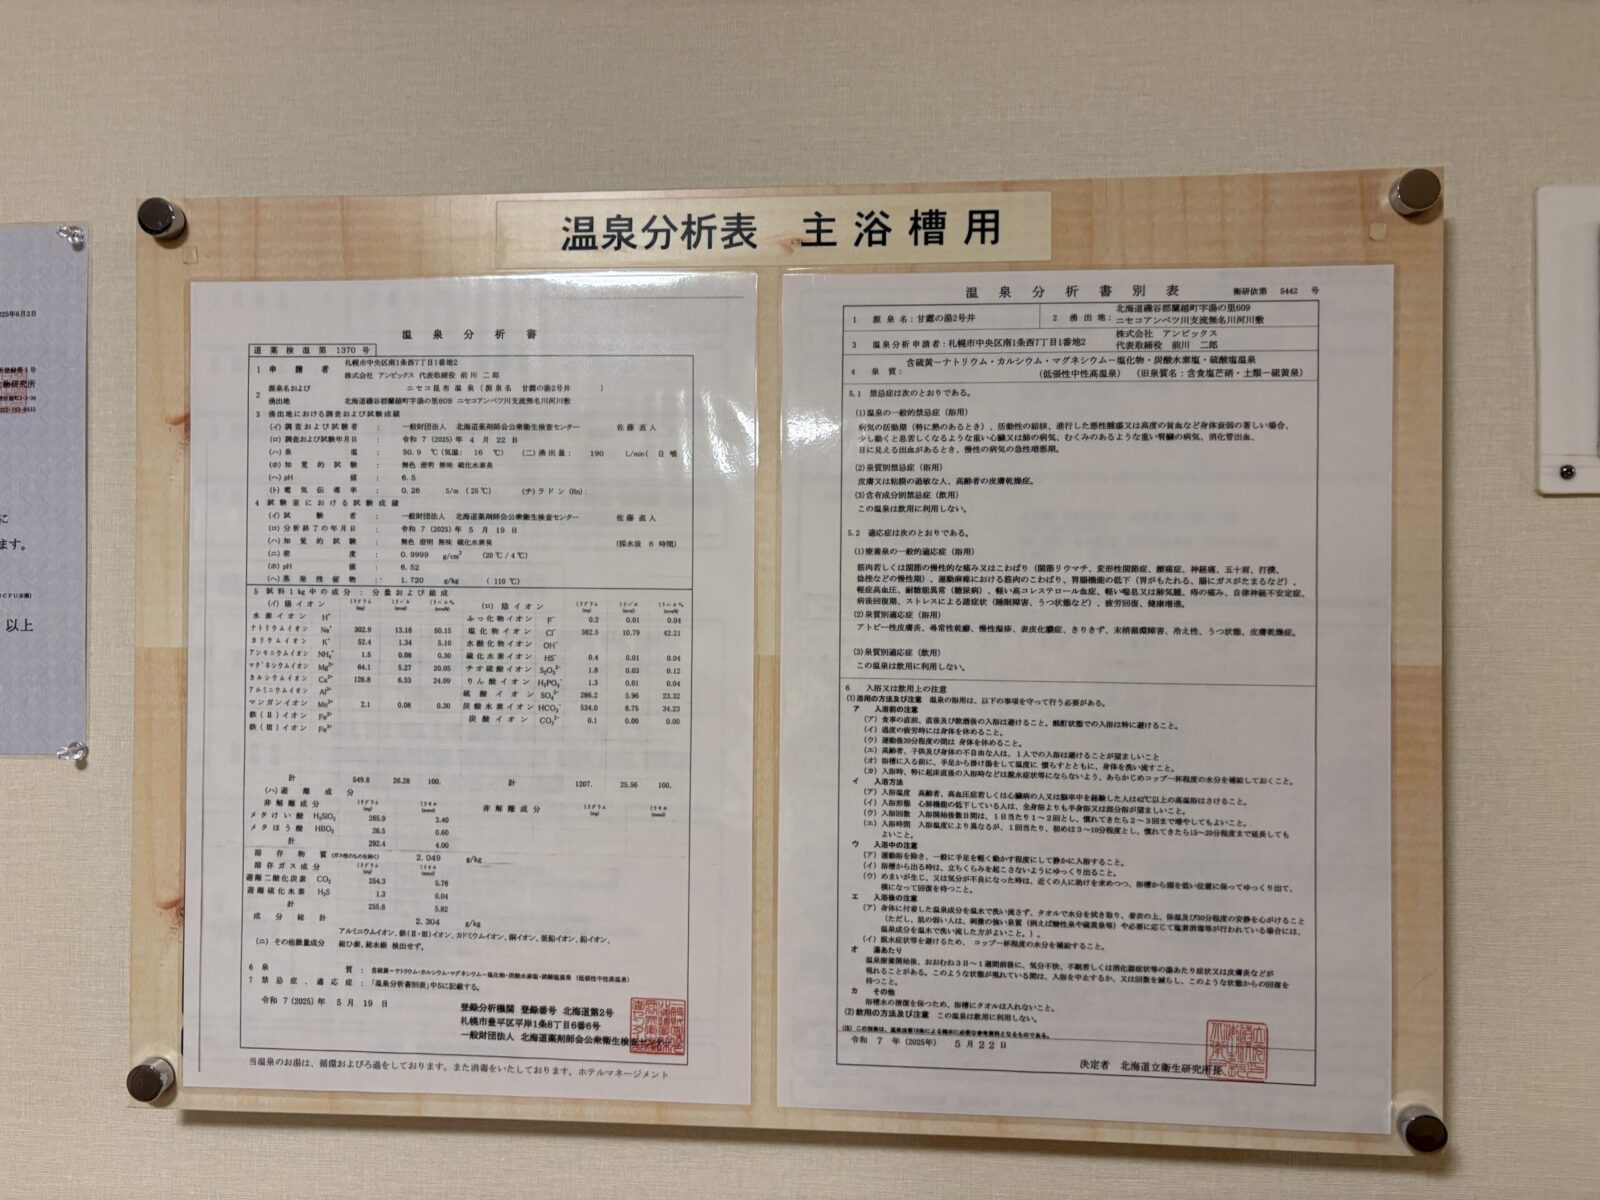 温泉分析表　主浴槽用
温泉分析書
道薬検温第 1370 号
1 申請者 札幌市中央区南1条西7丁目1番地2
株式会社 アンビックス 代表取締役 前川 二郎
2 源泉名および ニセコ昆布温泉（源泉名 甘露の湯2号井 ）
湧出地 北海道磯谷郡蘭越町字湯の里609 ニセコアンベツ川支流無名川河川敷
3 湧出地における調査および試験成績
(イ)調査および試験者 : 一般財団法人 北海道薬剤師会公衆衛生検査センター 佐藤 直人
(ロ)調査および試験年月日 : 令和 7 (2025) 年 4 月 22 日
(ハ)泉温 : 50.9 ℃(気温: 16 ℃) (ニ)湧出量: 190 L/min( 自噴
(ホ)知覚的試験 : 無色 澄明 無味 硫化水素臭
(ヘ)pH値 : 6.5
(ト)電気伝導率 : 0.26 S/m (25℃) (チ)ラドン(Rn):
4 試験室における試験成績
(イ)試験者 : 一般財団法人 北海道薬剤師会公衆衛生検査センター 佐藤 直人
(ロ)分析終了の年月日 : 令和 7 (2025) 年 5 月 19 日
(ハ)知覚的試験 : 無色 澄明 無味 硫化水素臭 (採水後 6 時間)
(ニ)密度 : 0.9999 g/cm³ (20℃/4℃)
(ホ)pH値 : 6.52
(ヘ)蒸発残留物 : 1.720 g/kg (110℃)
5 試料1kg中の成分: 分量および組成
(イ)陽イオン ミリグラム(mg) ミリバル(mval) ミリバル%(mval%)
水素イオン H⁺
ナトリウムイオン Na⁺ 302.9 13.18 50.15
カリウムイオン K⁺ 52.4 1.34 5.10
アンモニウムイオン NH₄⁺ 1.5 0.08 0.30
マグネシウムイオン Mg²⁺ 64.1 5.27 20.05
カルシウムイオン Ca²⁺ 126.8 6.33 24.09
アルミニウムイオン Al³⁺
マンガンイオン Mn²⁺ 2.1 0.08 0.30
鉄(Ⅱ)イオン Fe²⁺
鉄(Ⅲ)イオン Fe³⁺
計 549.8 26.28 100.
(ロ)陰イオン ミリグラム(mg) ミリバル(mval) ミリバル%(mval%)
ふっ化物イオン F⁻ 0.2 0.01 0.04
塩化物イオン Cl⁻ 382.5 10.79 42.21
水酸化物イオン OH⁻
硫化水素イオン HS⁻ 0.4 0.01 0.04
チオ硫酸イオン S₂O₃²⁻ 1.8 0.03 0.12
りん酸イオン H₂PO₄⁻ 1.3 0.01 0.04
硫酸イオン SO₄²⁻ 286.2 5.96 23.32
炭酸水素イオン HCO₃⁻ 534.0 8.75 34.23
炭酸イオン CO₃²⁻ 0.1 0.00 0.00
計 1207. 25.56 100.
(ハ)遊離成分
非解離成分 ミリグラム(mg) ミリモル(mmol) 非解離成分 ミリグラム(mg) ミリモル(mmol)
メタけい酸 H₂SiO₃ 265.9 3.40
メタほう酸 HBO₂ 26.5 0.60
計 292.4 4.00
溶存物質(ガス性のものを除く) 2.049 g/kg
溶存ガス成分 ミリグラム(mg) ミリモル(mmol)
遊離二酸化炭素 CO₂ 254.3 5.78
遊離硫化水素 H₂S 1.3 0.04
計 255.6 5.82
成分総計 2.304 g/kg
アルミニウムイオン、鉄(Ⅱ・Ⅲ)イオン、カドミウムイオン、銅イオン、亜鉛イオン、鉛イオン、
(ニ)その他微量成分 総ひ素、総水銀 検出せず。
6 泉質 : 含硫黄ーナトリウム・カルシウム・マグネシウムー塩化物・炭酸水素塩・硫酸塩温泉 (低張性中性高温泉)
7 禁忌症、適応症 : 「温泉分析書別表」中5に記載する。
令和 7 (2025) 年 5 月 19 日
登録分析機関 登録番号 北海道第2号
札幌市豊平区平岸1条8丁目6番6号
一般財団法人 北海道薬剤師会公衆衛生検査センター
当温泉のお湯は、循環およびろ過をしております。また消毒をいたしております。ホテルマネージメント
温泉分析書別表 衛研依第 5442 号
1 源泉名: 甘露の湯2号井
2 湧出地: 北海道磯谷郡蘭越町字湯の里609
ニセコアンベツ川支流無名川河川敷
3 温泉分析申請者: 札幌市中央区南1条西7丁目1番地2 株式会社 アンビックス
代表取締役 前川 二郎
4 泉質: 含硫黄ーナトリウム・カルシウム・マグネシウムー塩化物・炭酸水素塩・硫酸塩温泉
(低張性中性高温泉) (旧泉質名: 含食塩芒硝・土類ー硫黄泉)
5.1 禁忌症は次のとおりである。
(1)温泉の一般的禁忌症 (浴用)
病気の活動期 (特に熱のあるとき)、活動性の結核、進行した悪性腫瘍又は高度の貧血など身体衰弱の著しい場合、
少し動くと息苦しくなるような重い心臓又は肺の病気、むくみのあるような重い腎臓の病気、消化管出血、
目に見える出血があるとき、慢性の病気の急性増悪期。
(2)泉質別禁忌症 (浴用)
皮膚又は粘膜の過敏な人、高齢者の皮膚乾燥症。
(3)含有成分別禁忌症 (飲用)
この温泉は飲用に利用しない。
5.2 適応症は次のとおりである。
(1)療養泉の一般的適応症 (浴用)
筋肉若しくは関節の慢性的な痛み又はこわばり (関節リウマチ、変形性関節症、腰痛症、神経痛、五十肩、打撲、
捻挫などの慢性期)、運動麻痺における筋肉のこわばり、胃腸機能の低下 (胃がもたれる、腸にガスがたまるなど)、
軽症高血圧、耐糖能異常 (糖尿病)、軽い高コレステロール血症、軽い喘息又は肺気腫、痔の痛み、自律神経不安定症、
病後回復期、ストレスによる諸症状 (睡眠障害、うつ状態など)、疲労回復、健康増進。
(2)泉質別適応症 (浴用)
アトピー性皮膚炎、尋常性乾癬、慢性湿疹、表皮化膿症、きりきず、末梢循環障害、冷え性、うつ状態、皮膚乾燥症。
(3)泉質別適応症 (飲用)
この温泉は飲用に利用しない。
6 入浴又は飲用上の注意
(1)浴用の方法及び注意 温泉の浴用は、以下の事項を守って行う必要がある。
ア 入浴前の注意
(ア)食事の直前、直後及び飲酒後の入浴は避けること。酩酊状態での入浴は特に避けること。
(イ)過度の疲労時には身体を休めること。
(ウ)運動後30分程度の間は 身体を休めること。
(エ)高齢者、子供及び身体の不自由な人は、1人での入浴は避けることが望ましいこと
(オ)浴槽に入る前に、手足から掛け湯をして温度に 慣らすとともに、身体を洗い流すこと。
(カ)入浴時、特に起床直後の入浴時などは脱水症状等にならないよう、あらかじめコップ一杯程度の水分を補給しておくこと。
イ 入浴方法
(ア)入浴温度 高齢者、高血圧症若しくは心臓病の人又は脳卒中を経験した人は42℃以上の高温浴はさけること。
(イ)入浴形態 心肺機能の低下している人は、全身浴よりも半身浴又は部分浴が望ましいこと。
(ウ)入浴回数 入浴開始後数日間は、1日当たり1～2回とし、慣れてきたら2～3回まで増やしてもよいこと。
(エ)入浴時間 入浴温度により異なるが、1回当たり、初めは3～10分程度とし、慣れてきたら15～20分程度まで延長しても
よいこと。
ウ 入浴中の注意
(ア)運動浴を除き、一般に手足を軽く動かす程度にして静かに入浴すること。
(イ)浴槽から出る時は、立ちくらみを起こさないようにゆっくり出ること。
(ウ)めまいが生じ、又は気分が不良になった時は、近くの人に助けを求めつつ、浴槽から頭を低い位置に保ってゆっくり出て、
横になって回復を待つこと。
エ 入浴後の注意
(ア)身体に付着した温泉成分を温水で洗い流さず、タオルで水分を拭き取り、着衣の上、保温及び30分程度の安静を心がけること
(ただし、肌の弱い人は、刺激の強い泉質 (例えば酸性泉や硫黄泉等) や必要に応じて塩素消毒等が行われている場合には、
温泉成分を温水で洗い流した方がよいこと。)。
(イ)脱水症状等を避けるため、コップ一杯程度の水分を補給すること。
オ 湯あたり
温泉療養開始後、おおむね3日～1週間前後に、気分不快、不眠若しくは消化器症状等の湯あたり症状又は皮膚炎などが
現れることがある。このような状態が現れている間は、入浴を中止するか、又は回数を減らし、このような状態からの回復を
待つこと。
カ その他
浴槽水の清潔を保つため、浴槽にタオルは入れないこと。
(2)飲用の方法及び注意 この温泉は飲用に利用しない。
(注) この別表は、温泉法第18条による掲示に必要な参考資料となるものである。
令和 7 年 (2025年) 5月22日
決定者 北海道立衛生研究所長